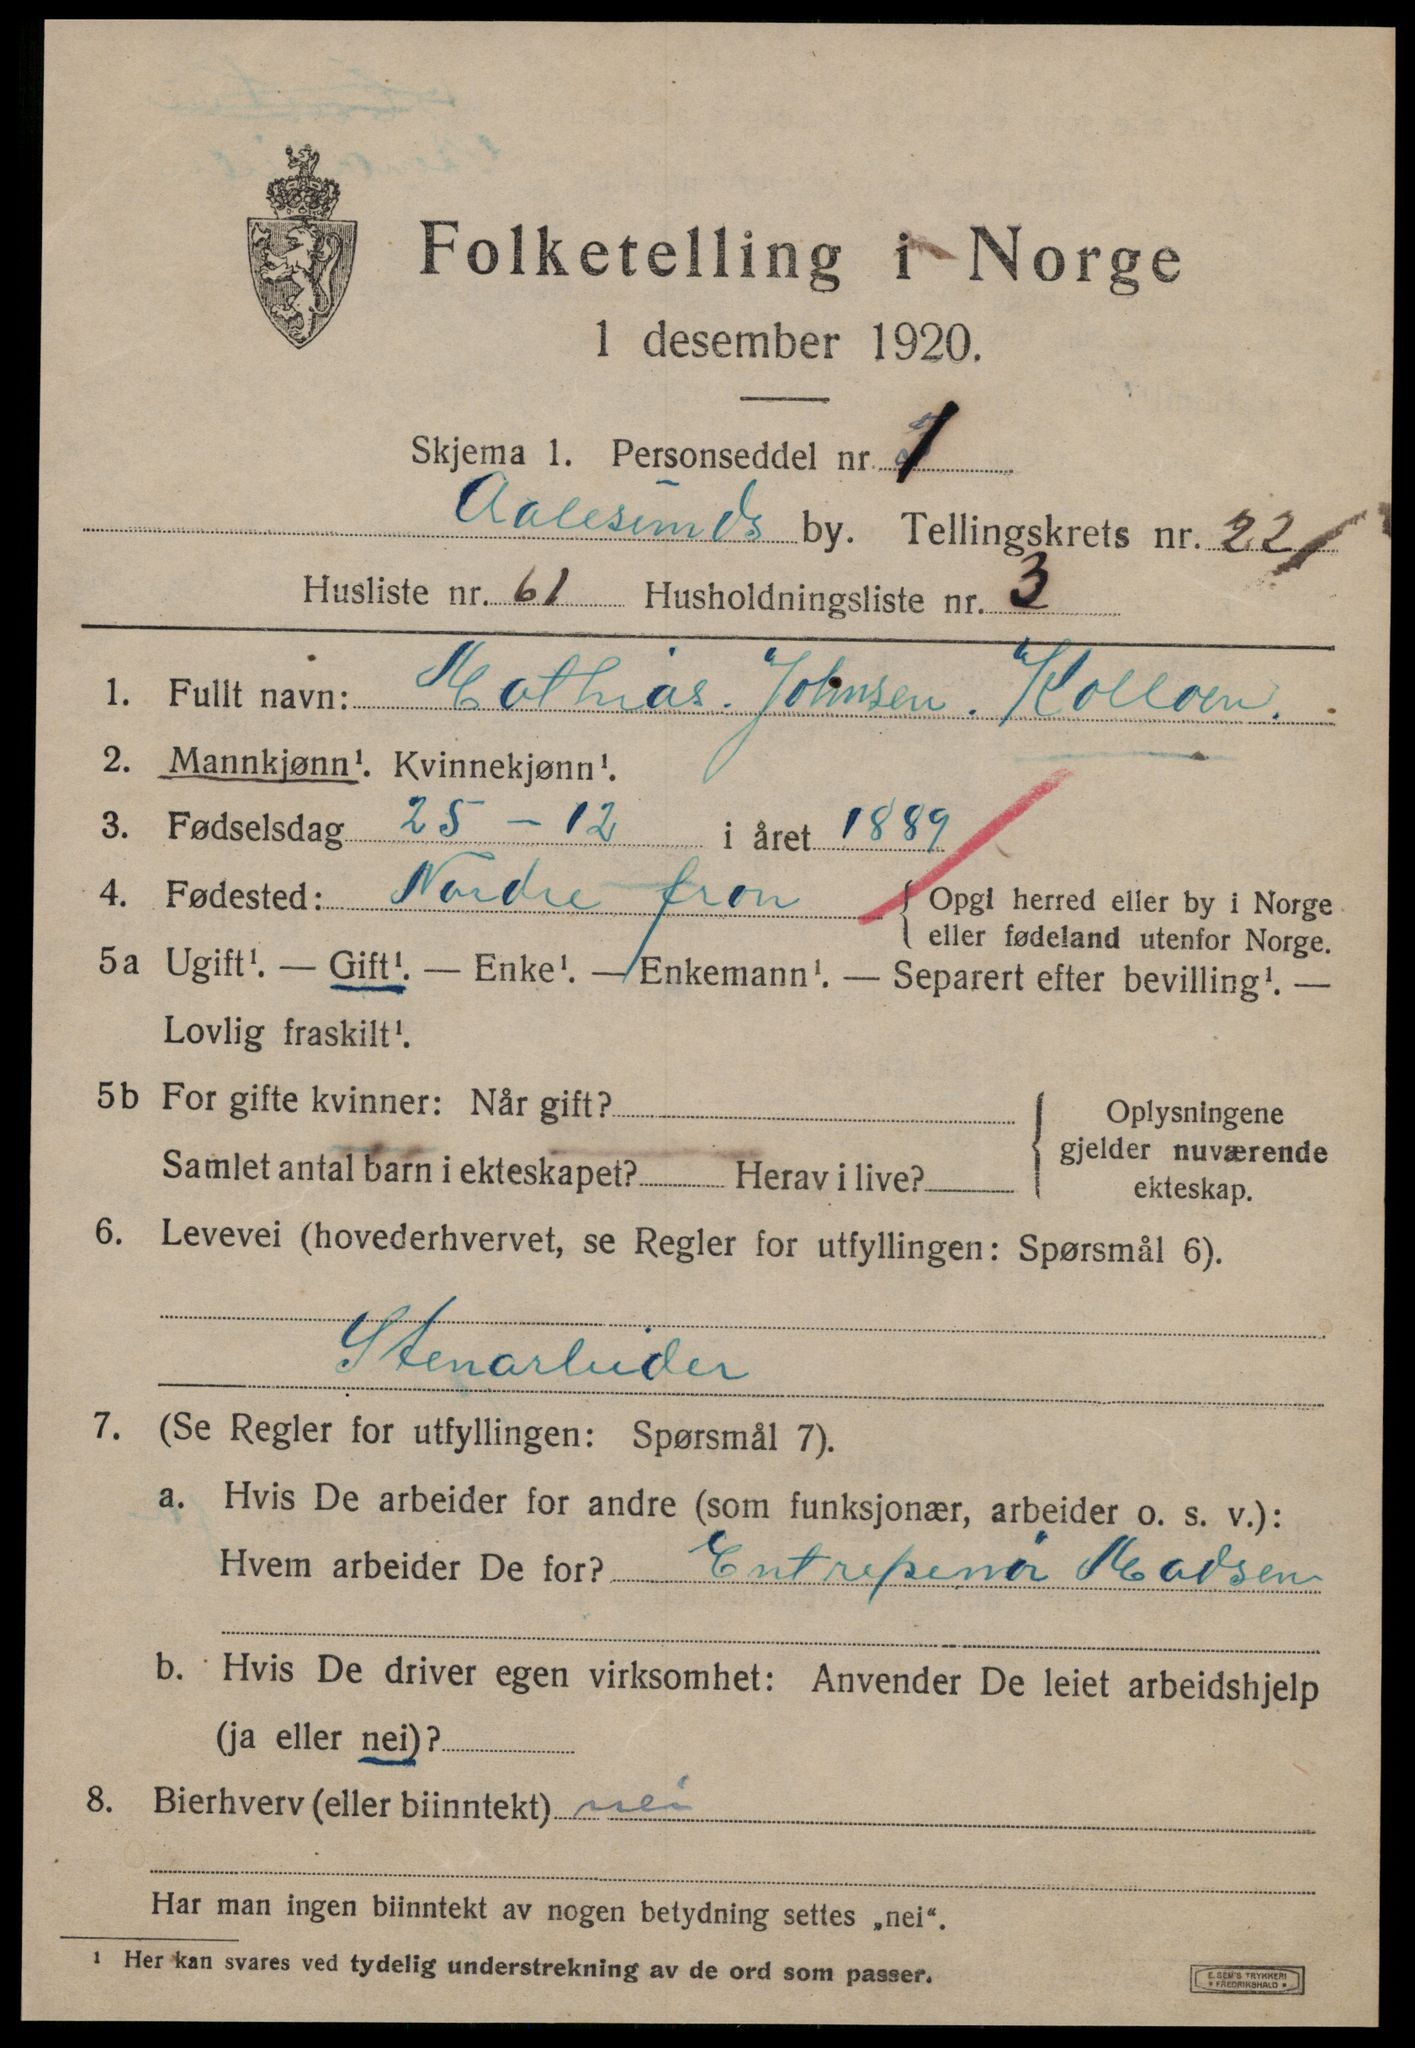 Folketelling i Norge
1 desember 1920.
Skjema 1. Personseddel nr. 1
Aalesunds by. Tellingskrets nr. 22
Husliste nr. 61 Husholdningsliste nr. 3
1. Fullt navn: Mathias. Johnsen. Kolloen.
2. Mannkjønn¹. Kvinnekjønn¹.
3. Fødselsdag 25 - 12 i året 1889
4. Fødested: Nordre fron { Opgi herred eller by i Norge
eller fødeland utenfor Norge.
5a Ugift¹. — Gift¹. — Enke¹. — Enkemann¹. — Separert efter bevilling¹. —
Lovlig fraskilt¹.
5b For gifte kvinner: Når gift? { Oplysningene
gjelder nuværende
Samlet antal barn i ekteskapet? Herav i live? ekteskap.
6. Levevei (hovederhvervet, se Regler for utfyllingen: Spørsmål 6).
Stenarbeider
7. (Se Regler for utfyllingen: Spørsmål 7).
a. Hvis De arbeider for andre (som funksjonær, arbeider o. s. v.):
Hvem arbeider De for? Entrepenør Madsen
b. Hvis De driver egen virksomhet: Anvender De leiet arbeidshjelp
(ja eller nei)?
8. Bierhverv (eller biinntekt) nei
Har man ingen biinntekt av nogen betydning settes „nei“.
¹ Her kan svares ved tydelig understrekning av de ord som passer.
E. SEM'S TRYKKERI
* FREDRIKSHALD *